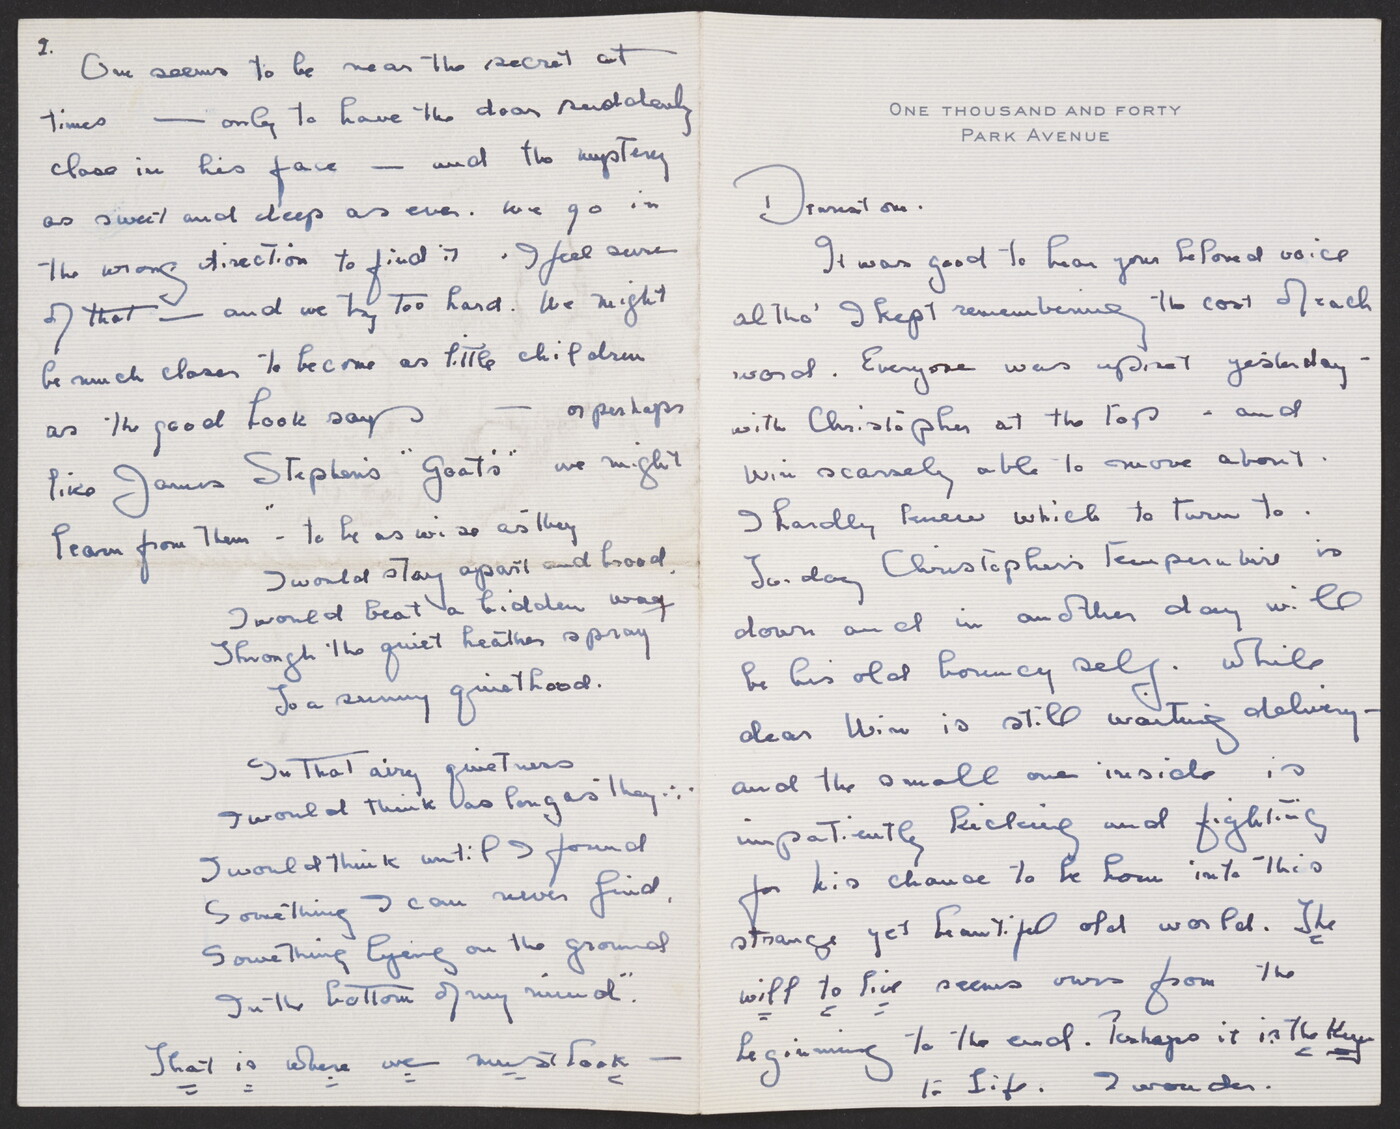 ONE THOUSAND AND FORTY
PARK AVENUE
Dearest one.
It was good to hear your beloved voice
altho' I kept remembering the cost of each
word. Everyone was upset yesterday -
with Christopher at the top - and
Win scarsely able to move about.
I hardly knew which to turn to.
To-day Christopher's temperature is
down and in another day will
be his old bouncy self. While
dear Win is still waiting delivery -
and the small one inside is
impatiently kicking and fighting
for his chance to be born into this
strange yet beautiful old world. The
will to live seems ours from the
beginning to the end. Perhaps it is the Key
to Life. I wonder.
2.
One seems to be near the secret at
times — only to have the door suddenly
close in his face — and the mystery
as sweet and deep as ever. We go in
the wrong direction to find it. I feel sure
of that — and we try too hard. We might
be much closer to become as little children
as the good book says — or perhaps
like James Stephen's "Goat's" we might
learn from them" - to be as wise as they
I would stay apart and brood,
I would beat a hidden way
Through the quiet heather spray
To a sunny quiethood.
In that airy quietness
I would think as long as they...
I would think until I found
Something I can never find,
Something lying on the ground
In the bottom of my mind".
That is where we must look —